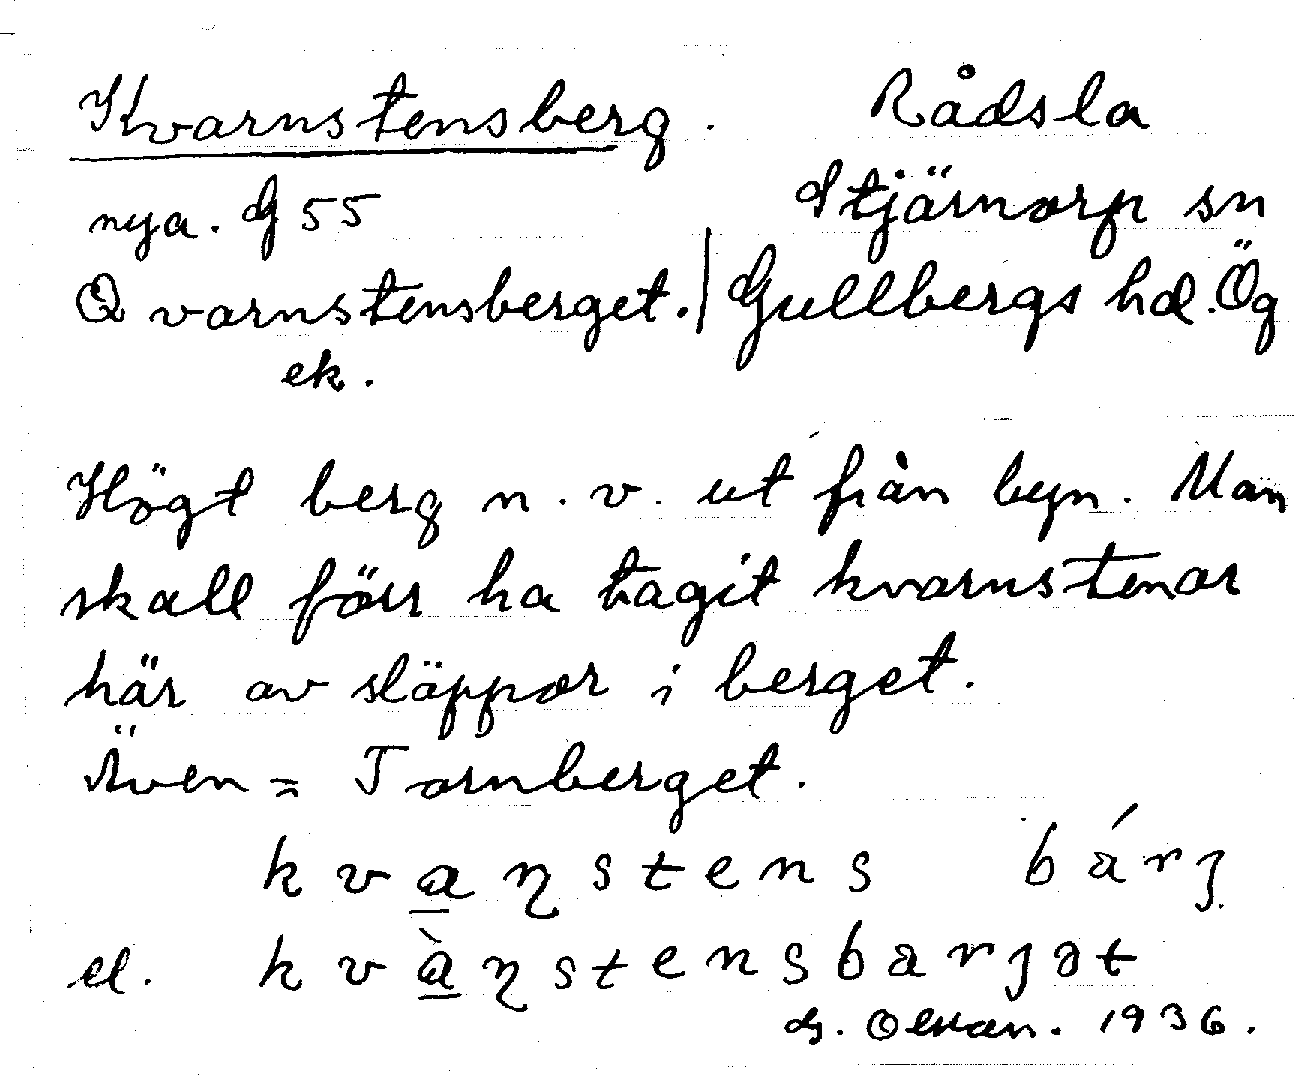 Kvarnstensberg. Rådsla
nya. G 55 Stjärnorp sn
Qvarnstensberget. / Gullbergs hd. Ög
ek.
Högt berg n. v. ut från byn. Man
skall förr ha tagit kvarnstenar
här av släppor i berget.
Även = Tornberget.
kvaɳstens bárʒ
el. kvàɳstensbarʒət
1936.